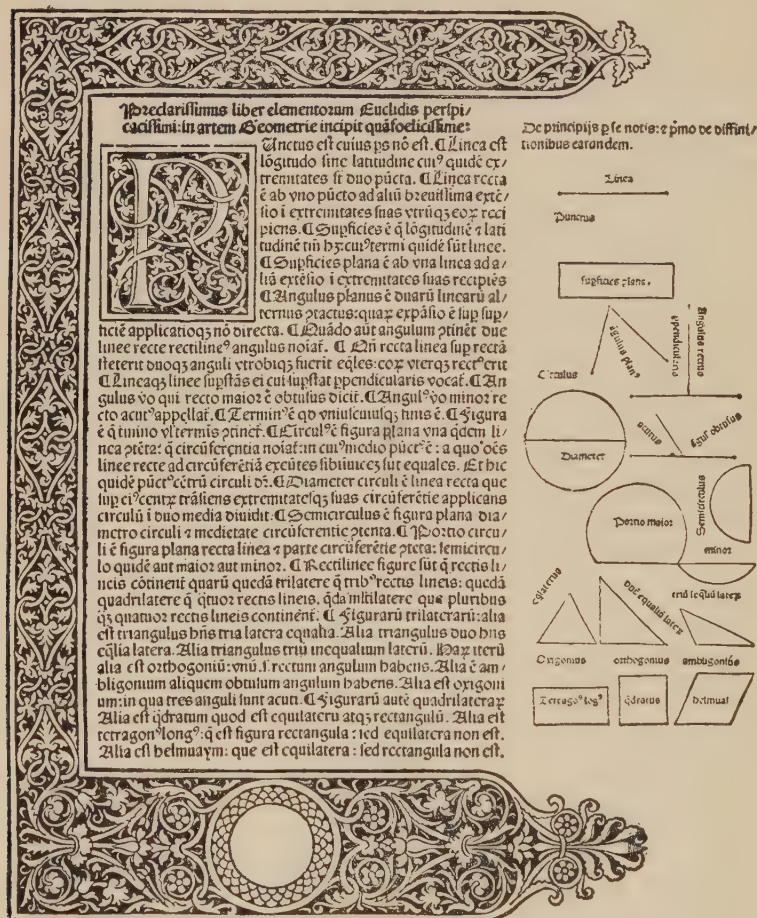 Preclarissimus liber elementorum Euclidis perspi/
cacissimi: in artem Geometrie incipit quãfoelicissime:
Punctus est cuius ps nõ est. ¶ Linea est
lõgitudo sine latitudine cuiꝰ quidẽ ex/
tremitates st duo pũcta. ¶ Linea recta
ẽ ab vno pũcto ad aliũ breuissima extẽ/
sio i extremitates suas vtrũqꝫ eoꝝ reci
piens. ¶ Supficies ẽ q̃ lõgitudinẽ ⁊ lati
tudinẽ tm̃ hꝫ: cuiꝰ termi quidẽ sũt linee.
¶ Supficies plana ẽ ab vna linea ad a/
liã extẽsio i extremitates suas recipiẽs
¶ Angulus planus ẽ duarũ linearũ al/
ternus ꝯtactus: quaꝝ expãsio ẽ sup sup/
ficiẽ applicatioqꝫ nõ directa. ¶ Quãdo aũt angulum ꝯtinẽt due
linee recte rectilineꝰ angulus noiaĩ. ¶ Qñ recta linea sup rectã
steterit duoqꝫ anguli vtrobiqꝫ fuerit eq̃les: eoꝝ vterqꝫ rectꝰ erit
¶ Lineaqꝫ linee supstãs ei cui supstat ppendicularis vocat̃. ¶ An
gulus vo qui recto maior ẽ obtusus dicit̃. ¶ Angulꝰ vo minor re
cto acutꝰ appellat̃. ¶ Terminꝰ ẽ qd vniuscuiusqꝫ finis ẽ. ¶ Figura
ẽ q̃ tmino vl terminis ꝯtinet̃. ¶ Circulꝰ ẽ figura plana vna q̃dem li/
nea ꝯtẽta: q̃ circũferentia noiat̃: in cuiꝰ medio pũctꝰ ẽ: a quo oẽs
linee recte ad circũferẽtiã exeũtes sibiinuiceꝫ sut equales. Et hic
quidẽ pũctꝰ cẽtrũ circuli dr̃. ¶ Diameter circuli ẽ linea recta que
sup eiꝰ centꝝ trãsiens extremitatesqꝫ suas circũferẽtie applicans
circulũ i duo media diuidit. ¶ Semicirculus ẽ figura plana dia/
metro circuli ⁊ medietate circũferentie ꝯtenta. ¶ Portio circu/
li ẽ figura plana recta linea ⁊ parte circũferẽtie ꝯtẽta: semicircu/
lo quidẽ aut maior aut minor. ¶ Rectilinee figure sũt q̃ rectis li/
neis cõtinent̃ quarũ quedã trilatere q̃ tribꝰ rectis lineis: quedã
quadrilatere q̃ q̃tuor rectis lineis. q̃da mĩltilatere que pluribus
qꝫ quatuor rectis lineis continent̃. ¶ Figurarũ trilaterarũ: alia
est triangulus hñs tria latera equalia. Alia triangulus duo hñs
eq̃lia latera. Alia triangulus triũ inequalium laterũ. Haꝝ iterũ
alia est orthogoniũ: vnũ .s. rectum angulum habens. Alia ẽ am/
bligonium aliquem obtusum angulum habens. Alia est oxigoni
um: in qua tres anguli sunt acuti. ¶ Figurarũ autẽ quadrilateraꝝ
Alia est q̃dratum quod est equilaterũ atqꝫ rectangulũ. Alia est
tetragonꝰ longꝰ: q̃ est figura rectangula: sed equilatera non est.
Alia est helmuaym: que est equilatera: sed rectangula non est.
De principijs p se notis: ⁊ pmo de diffini/
tionibus earandem.
Linea
Punctus
supficies plana.
ãgulus planꝰ
ppendicularis
Angulus rectus
Circulus
Diameter
acutus
ãgulꝰ obtusus
Semicirculus
Portio maior
minor
eq̃laterus
duũ equaliũ lateꝝ
triũ ineq̃liũ lateꝝ
Oxigonius
orthogonius
ambligoniꝰ
Tetragoꝰ lõgꝰ
q̃dratus
helmuai